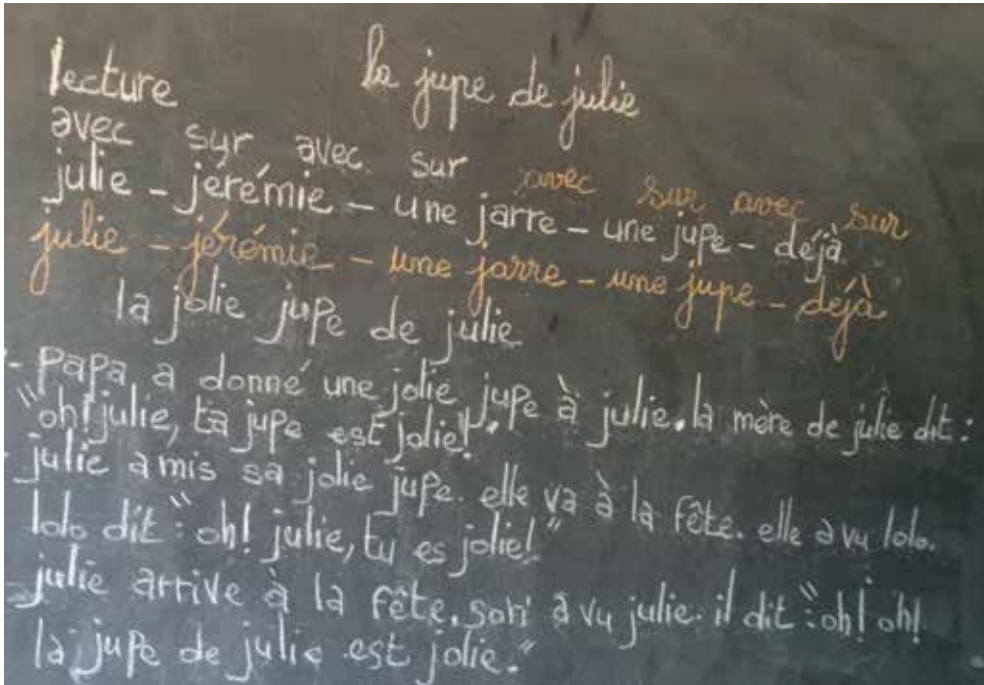 lecture la jupe de julie
avec sur avec sur avec sur avec sur
julie - jérémie - une jarre - une jupe - déjà
julie - jérémie - une jarre - une jupe - déjà
la jolie jupe de julie
- papa a donné une jolie jupe à julie. la mère de julie dit :
"oh! julie, ta jupe est jolie!".
- julie a mis sa jolie jupe. elle va à la fête. elle a vu lolo.
lolo dit : "oh! julie, tu es jolie!"
- julie arrive à la fête. son' a vu julie. il dit ": oh! oh!
la jupe de julie est jolie."